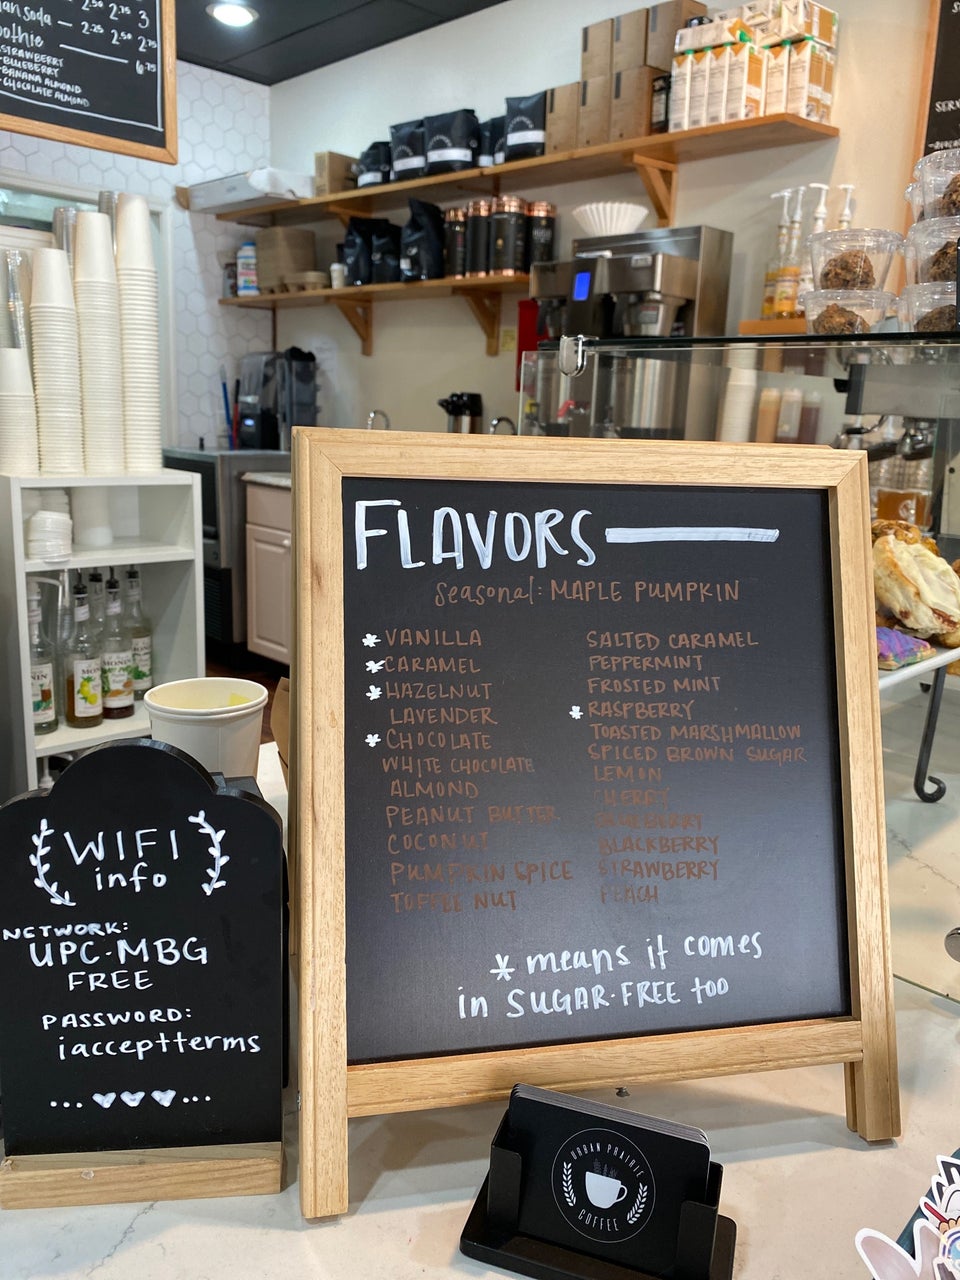 2.50 2.75 3
ian soda — 2.25 2.50 2.75
oothie — 6.75
STRAWBERRY
-BLUEBERRY
-BANANA ALMOND
-CHOCOLATE ALMOND
FLAVORS
seasonal: MAPLE PUMPKIN
*VANILLA
*CARAMEL
*HAZELNUT
LAVENDER
*CHOCOLATE
WHITE CHOCOLATE
ALMOND
PEANUT BUTTER
COCONUT
PUMPKIN SPICE
TOFFEE NUT
SALTED CARAMEL
PEPPERMINT
FROSTED MINT
*RASPBERRY
TOASTED MARSHMALLOW
SPICED BROWN SUGAR
LEMON
CHERRY
BLUEBERRY
BLACKBERRY
STRAWBERRY
PEACH
* means it comes
in SUGAR-FREE too
WIFI
info
NETWORK:
UPC-MBG
FREE
PASSWORD:
iacceptterms
URBAN PRAIRIE
COFFEE
MONIN
MONIN